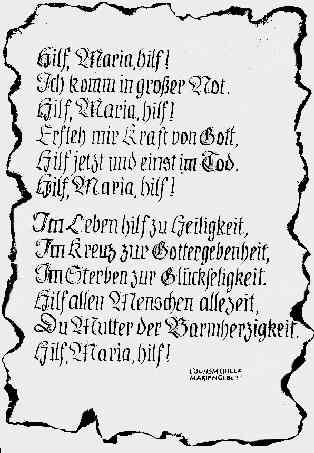 Hilf, Maria, hilf!
Ich komm in großer Not.
Hilf, Maria, hilf!
Erfleh mir Kraft von Gott,
Hilf jetzt und einst im Tod.
Hilf, Maria, hilf!
Im Leben hilf zu Heiligkeit,
Im Kreuz zur Gottergebenheit,
Im Sterben zur Glückseligkeit.
Hilf allen Menschen allezeit,
Du Mutter der Barmherzigkeit.
Hilf, Maria, hilf!
MARIENGEBET